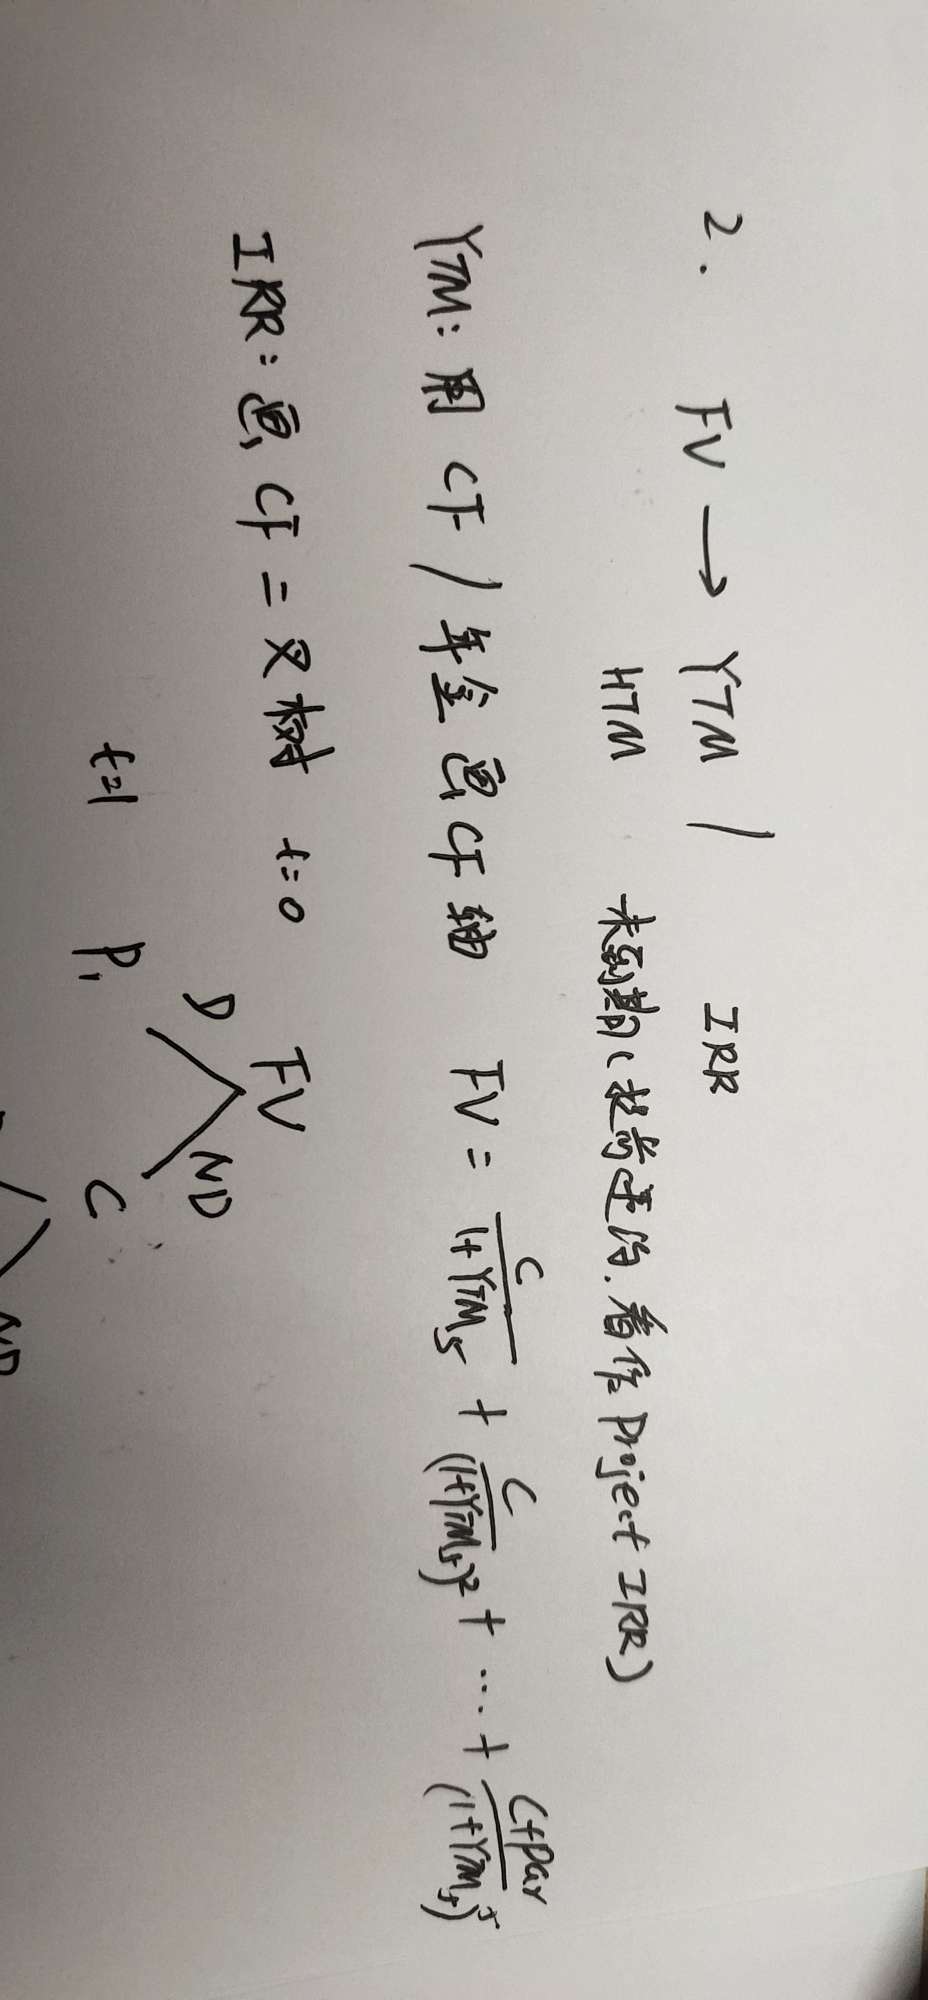 2. FV → YTM / IRR
HTM 未到期(提前违约.看作 Project IRR)
YTM: 用 CF / 年金 画 CF 轴 FV = C/(1+YTM₅) + C/(1+YTM₅)² + ... + C+par/(1+YTM₅)⁵
IRR: 画 CF 二叉树 t=0 FV
D ND
t=1 P₁ C
ND